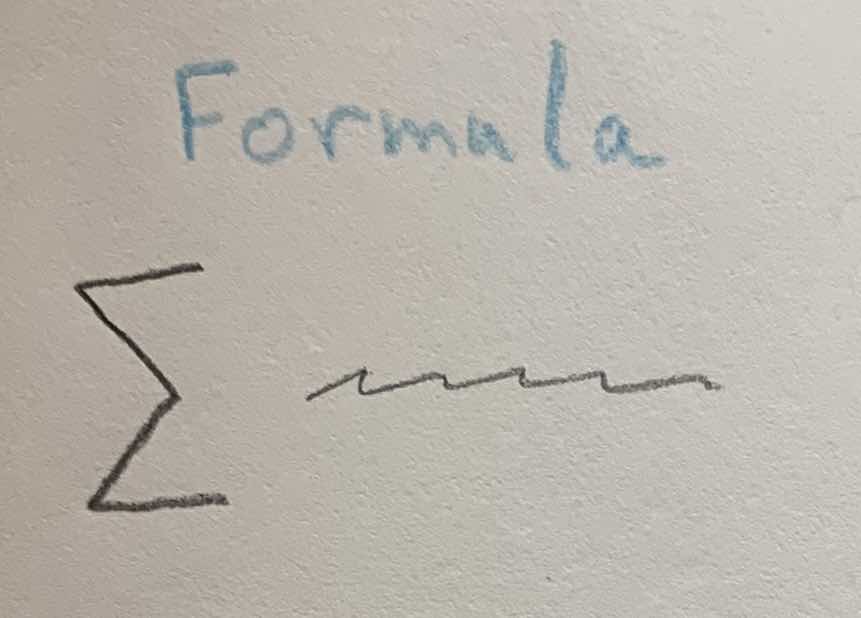 Formula
∑